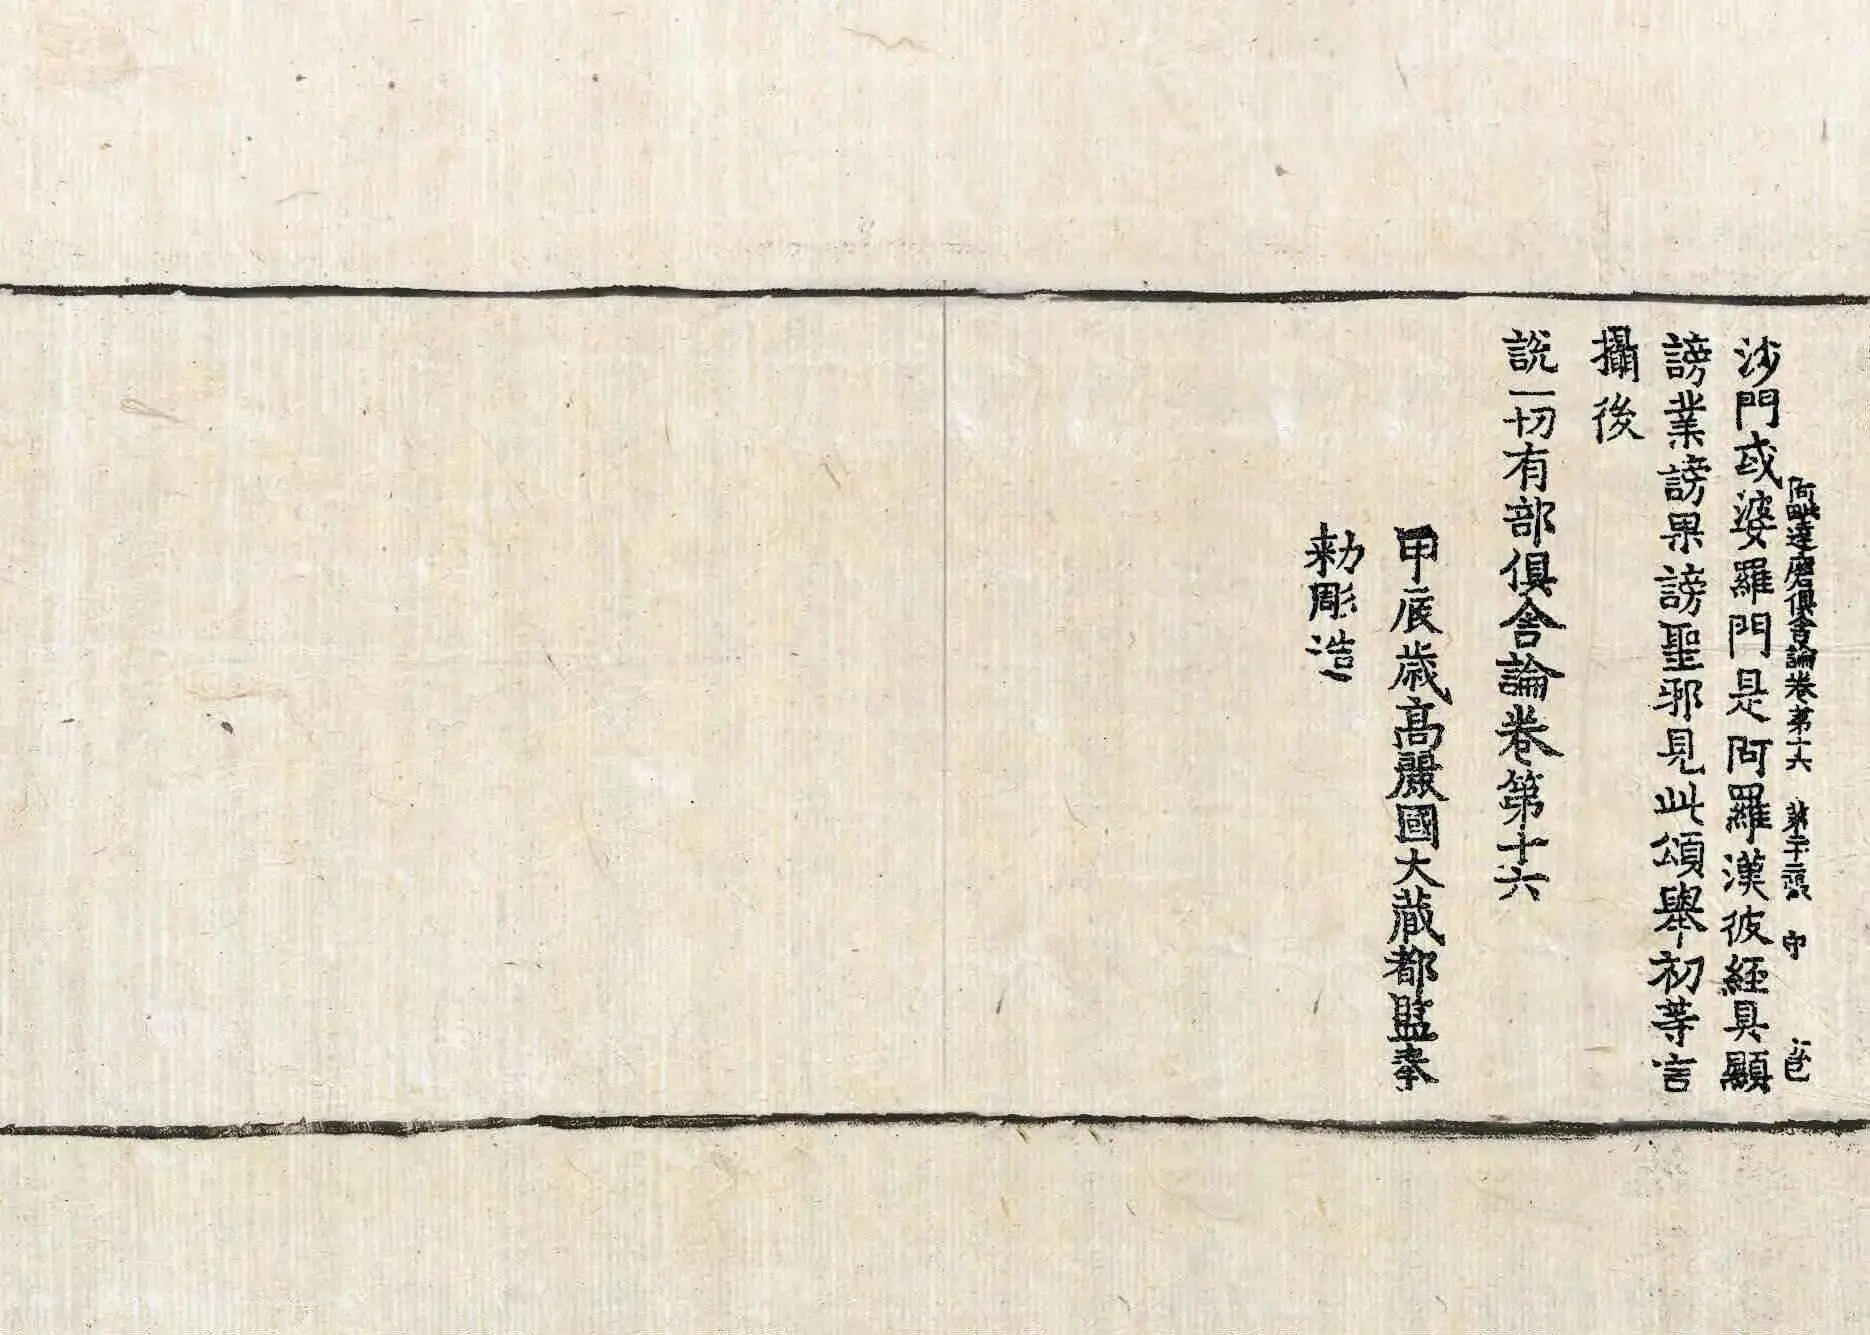 阿毗達磨俱舍論卷第十六　第二十二張　守
沙門或婆羅門是阿羅漢彼經具顯
謗業謗果謗聖邪見此頌舉初等言
攝後
說一切有部俱舍論卷第十六
甲辰歲高麗國大藏都監奉
勅彫造